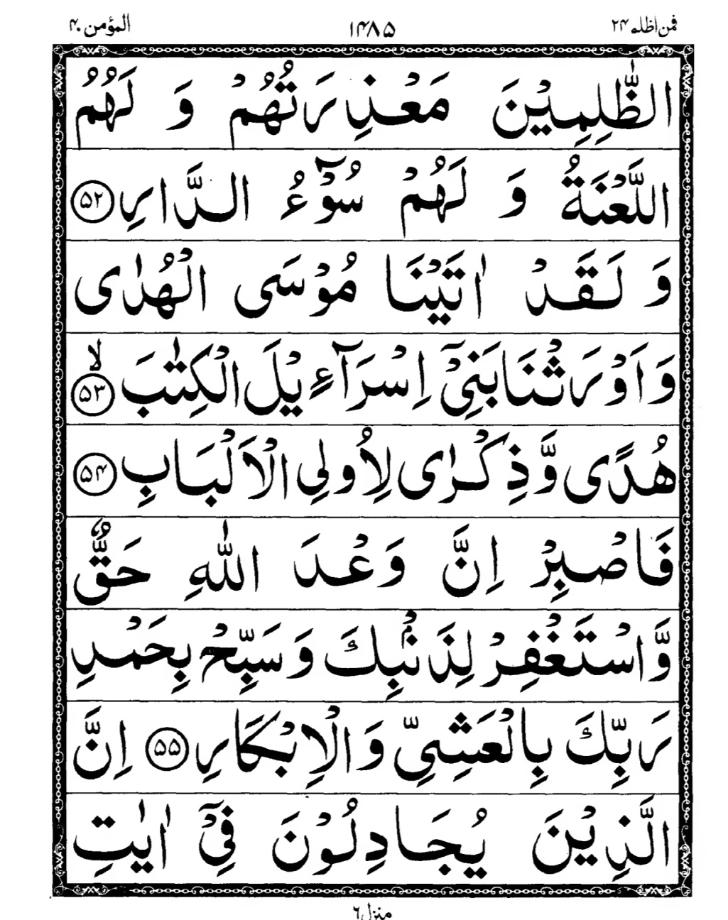 المؤمن ۴۰ ۱۴۸۵ فمن اظلم ۲۴
الظّٰلِمِيْنَ مَعْذِرَتُهُمْ وَ لَهُمُ
اللَّعْنَةُ وَ لَهُمْ سُوْٓءُ الدَّارِ ۵۲
وَ لَقَدْ اٰتَيْنَا مُوْسَى الْهُدٰى
وَ اَوْرَثْنَا بَنِيْٓ اِسْرَآءِيْلَ الْكِتٰبَ ۵۳ لا
هُدًى وَّ ذِكْرٰى لِاُولِي الْاَلْبَابِ ۵۴
فَاصْبِرْ اِنَّ وَعْدَ اللّٰهِ حَقٌّ
وَّ اسْتَغْفِرْ لِذَنْۢبِكَ وَ سَبِّحْ بِحَمْدِ
رَبِّكَ بِالْعَشِيِّ وَ الْاِبْكَارِ ۵۵ اِنَّ
الَّذِيْنَ يُجَادِلُوْنَ فِيْٓ اٰيٰتِ
منزل ۶